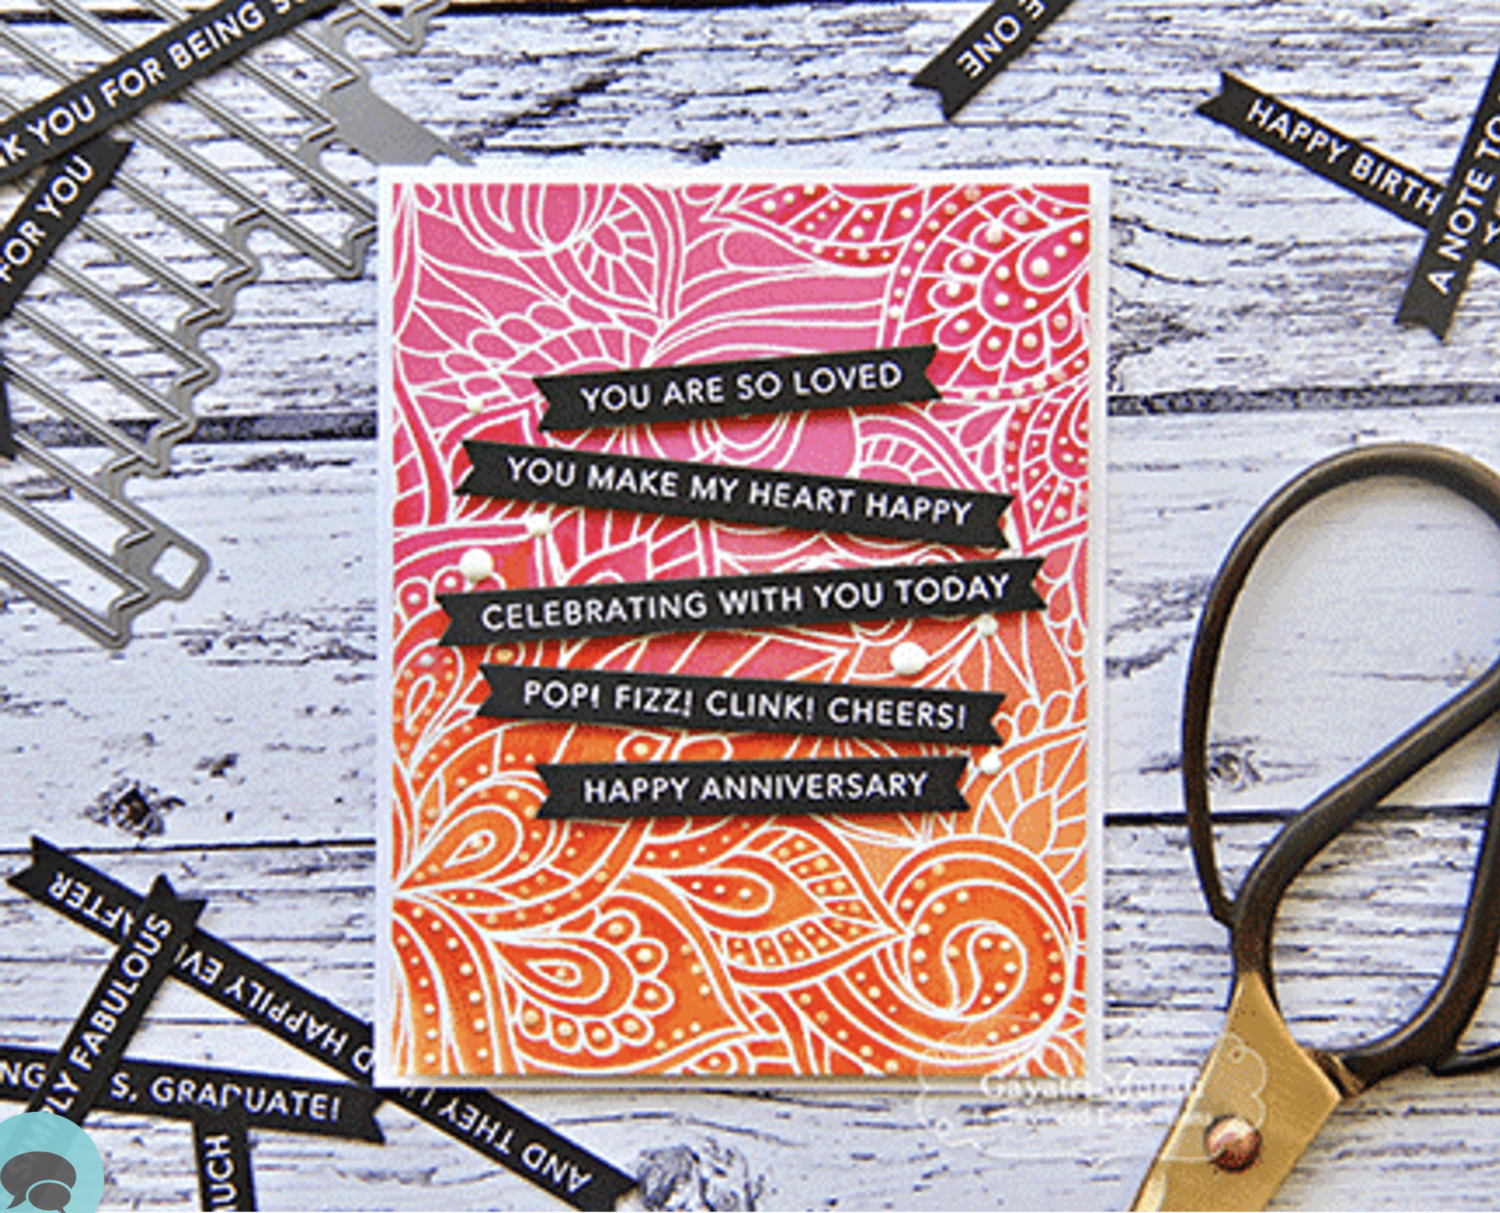 YOU FOR BEING
FOR YOU
ONE
HAPPY
A NOTE TO
YOU ARE SO LOVED
YOU MAKE MY HEART HAPPY
CELEBRATING WITH YOU TODAY
POP! FIZZ! CLINK! CHEERS!
HAPPY ANNIVERSARY
AND THEY HAPPILY AFTER
FABULOUS
GRADUATE!